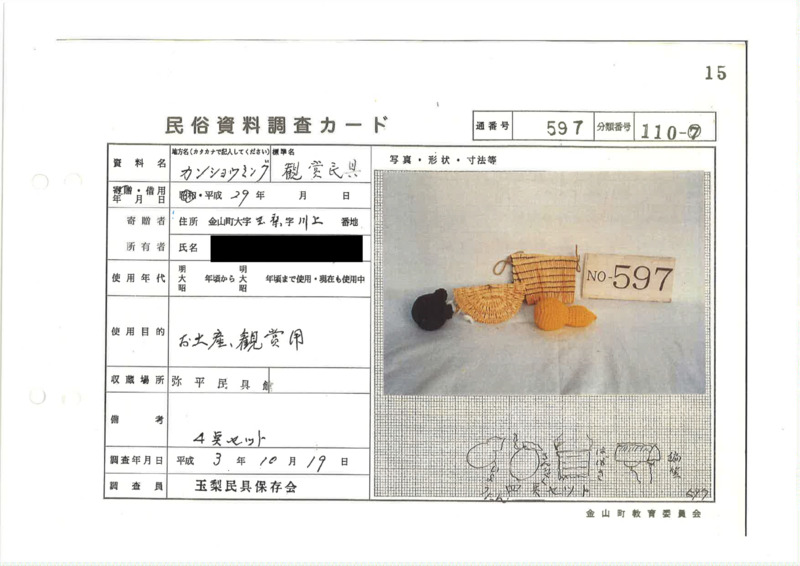 15
民俗資料調査カード
通番号 597 分類番号 110-⑦
資料名
地方名(カタカナで記入してください) 標準名
カンショウミング 観賞民具
写真・形状・寸法等
寄贈・借用
年月日
昭和・平成 29年 月 日
寄贈者
住所 金山町大字玉梨字川上 番地
所有者
氏名
使用年代
明大昭 年頃から 明大昭 年頃まで使用・現在も使用中
NO-597
使用目的
お土産、観賞用
収蔵場所
弥平民具館
備考
4点セット
調査年月日
平成 3年 10月 19日
調査員
玉梨民具保存会
四点セット
597
金山町教育委員会